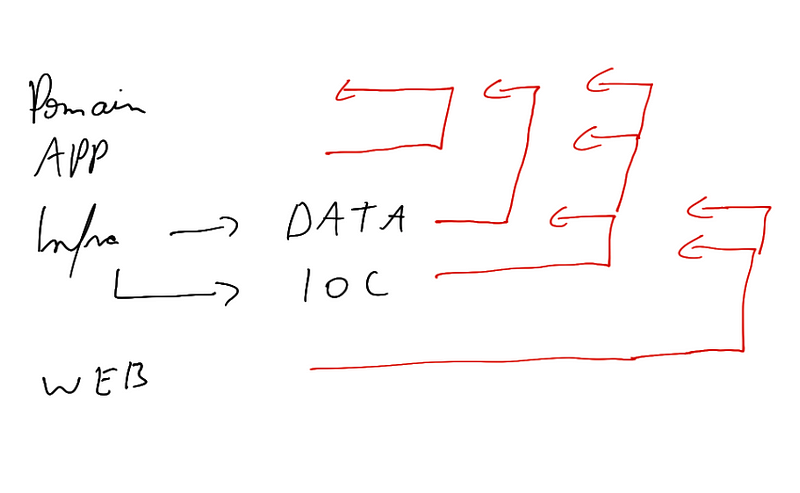 Domain
APP
Infra → DATA
IOC
WEB